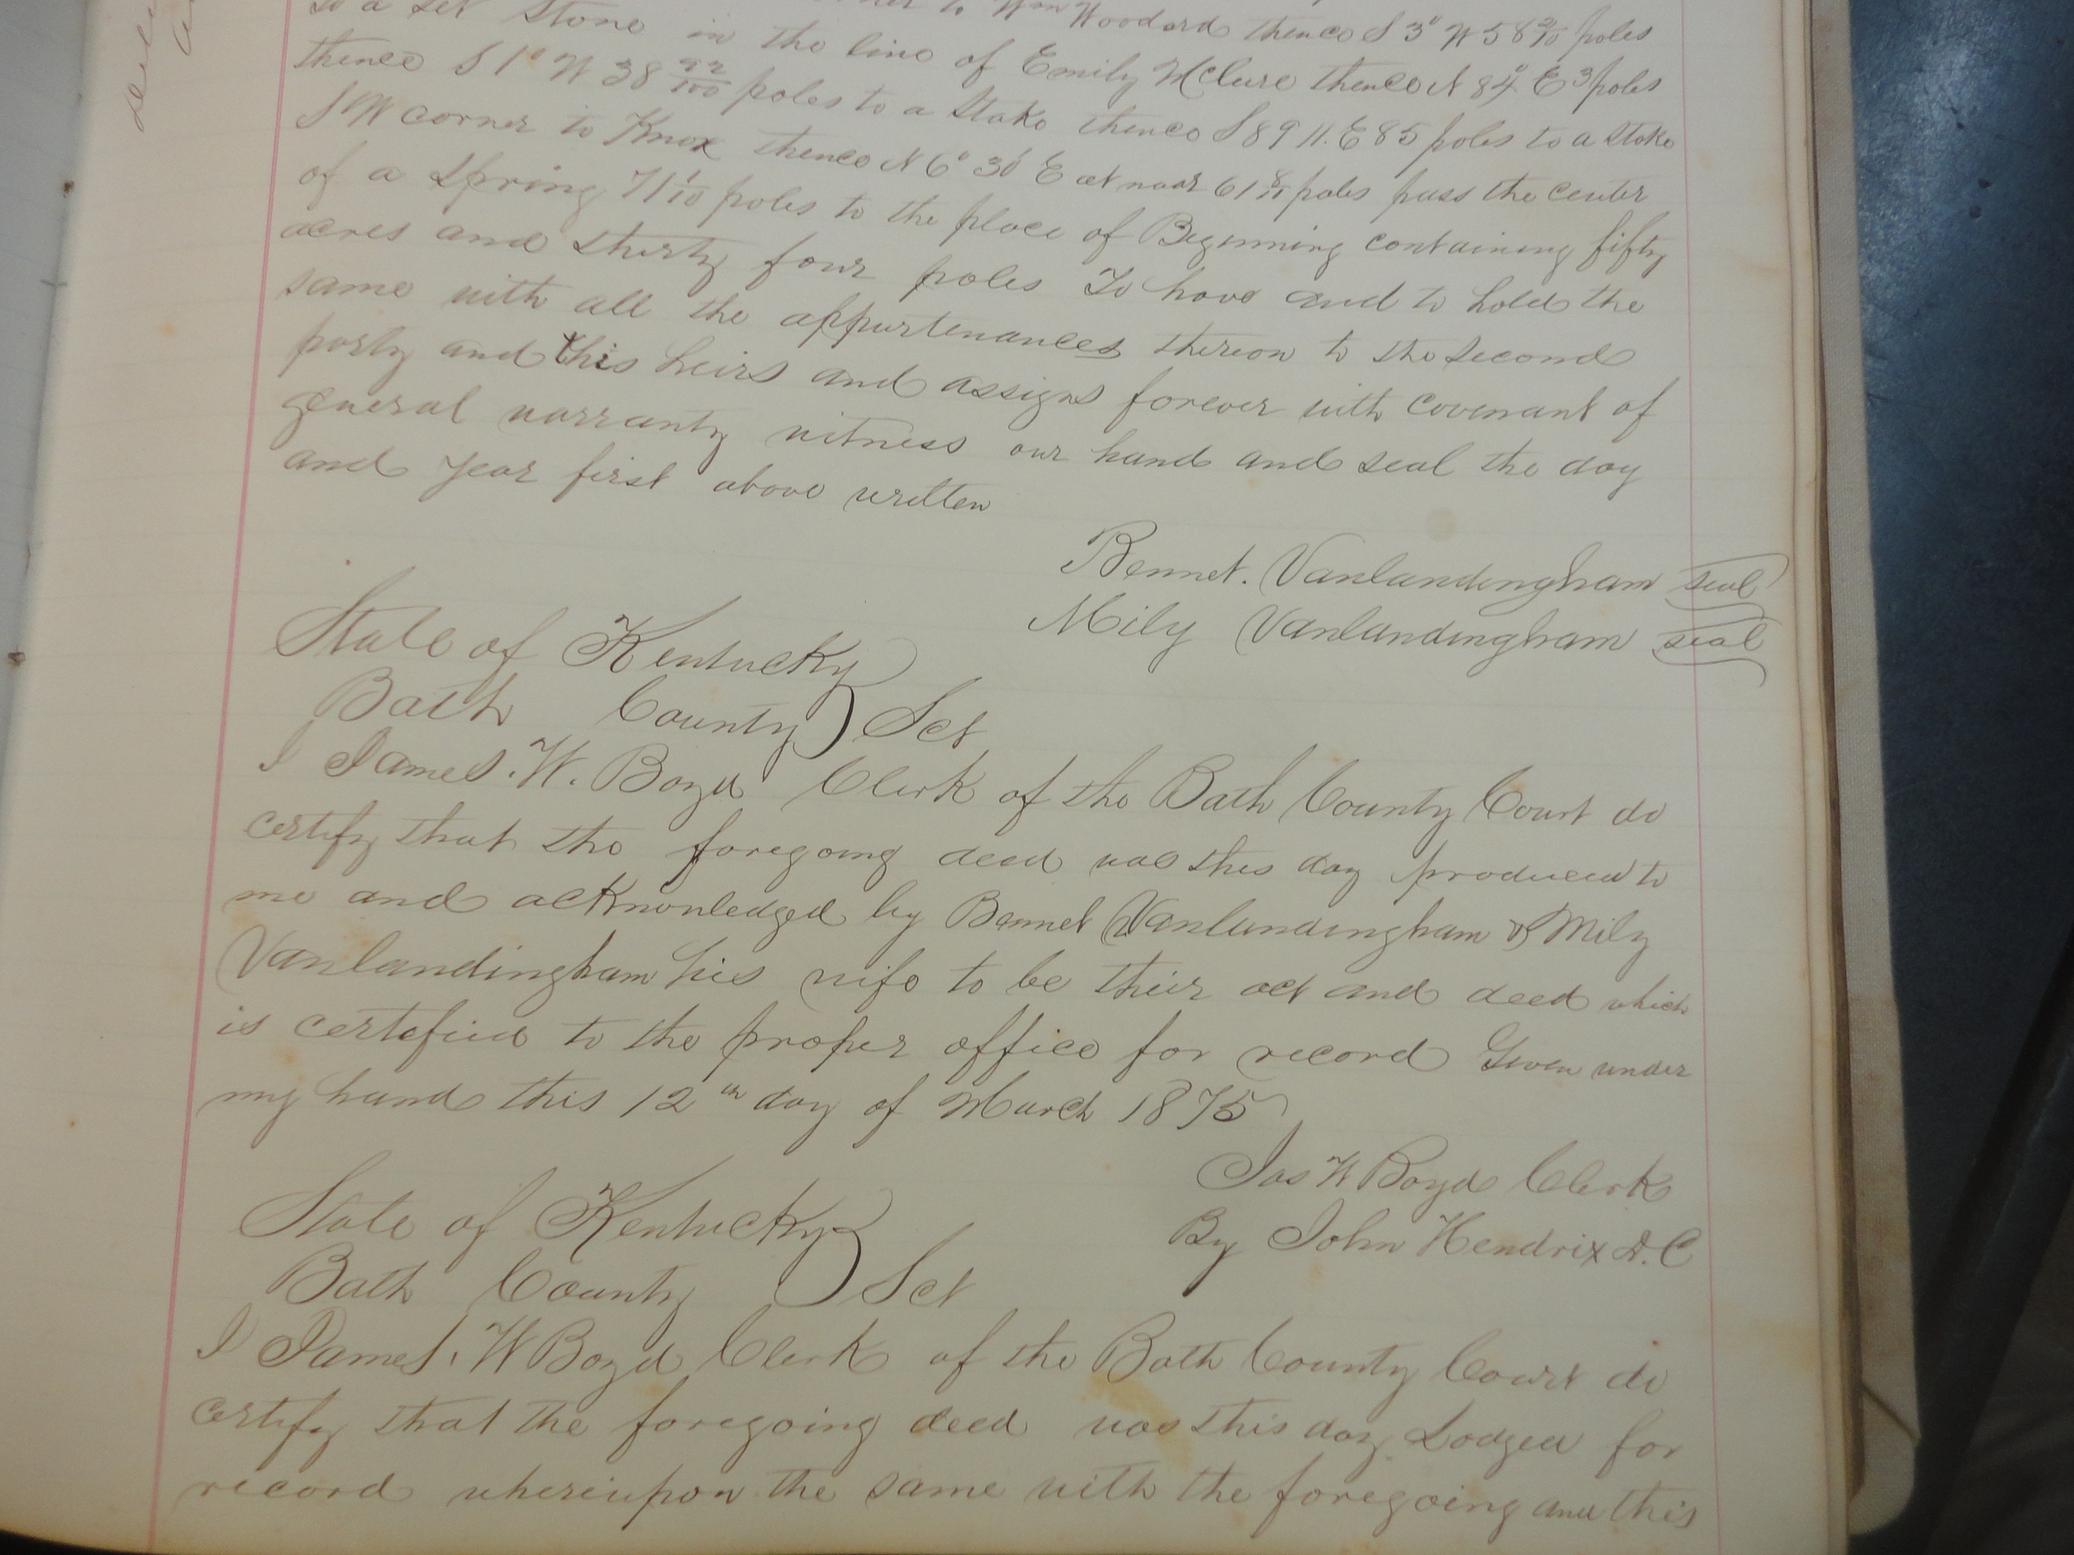 to a set Stone in the line of Emily McClure thence N 84° E 3 poles
corner to Wm Woodard thence S 3° W 58 9/10 poles
thence S 1° W 38 92/100 poles to a Stake thence S 89 11. E 85 poles to a Stake
S W corner to Knox thence N 6° 30' E at near 61 8/10 poles pass the center
of a Spring 71 1/10 poles to the place of Beginning containing fifty
acres and thirty four poles To have and to hold the
same with all the appurtenances thereon to the second
party and this heirs and assigns forever with covenant of
general warranty witness our hand and seal the day
and year first above written
Bennet. Vanlandingham seal
Mily Vanlandingham seal
State of Kentucky
Bath County ) Sct
I James. W. Boyd Clerk of the Bath County Court do
certify that the foregoing deed was this day produced to
me and acknowledged by Bennet Vanlandingham & Mily
Vanlandingham his wife to be their act and deed which
is certified to the proper office for record Given under
my hand this 12th day of March 1875
Jas W Boyd Clerk
By John Hendrix D.C
State of Kentucky
Bath County ) Sct
I James. W Boyd Clerk of the Bath County Court do
certify that the foregoing deed was this day Lodged for
record whereupon the same with the foregoing and this